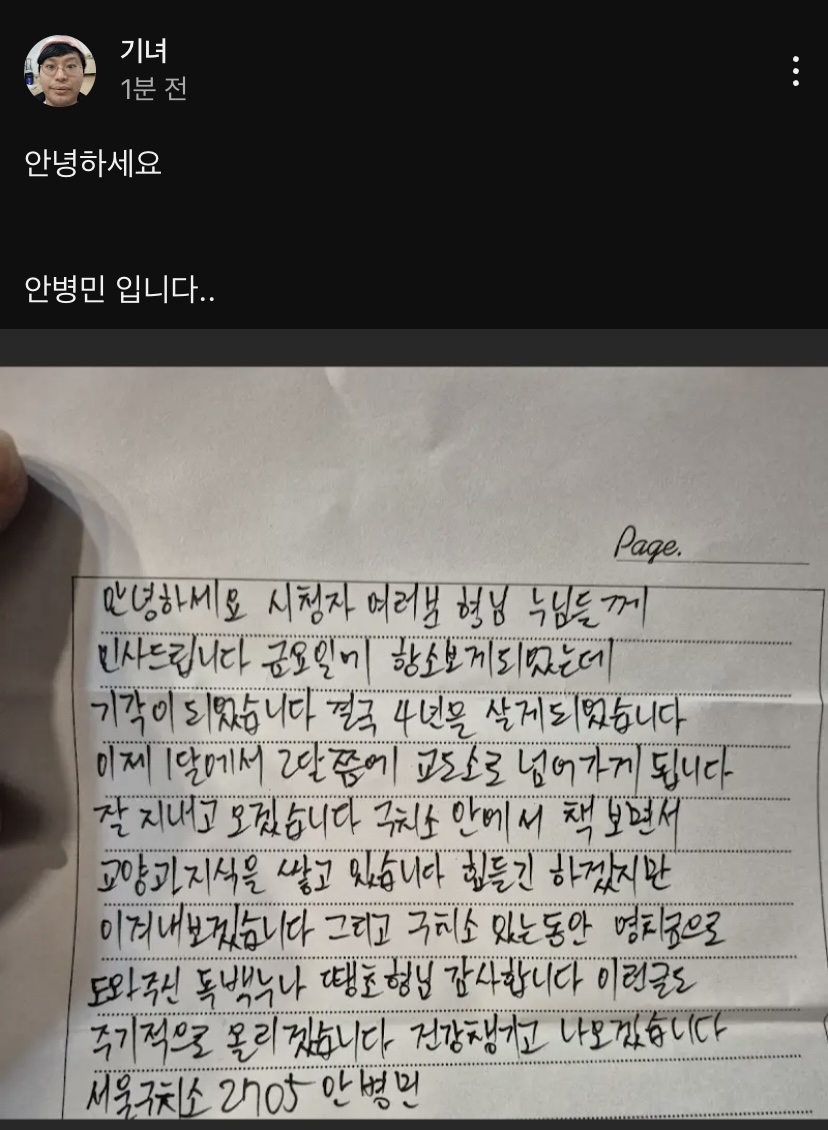 기녀
1분 전
안녕하세요
안병민 입니다..
Page.
안녕하세요 시청자 여러분 형님 누님들께
인사드립니다 금요일에 항소보게되었는데
기각이 되었습니다 결국 4년을 살게되었습니다
이제 1달에서 2달쯤에 교도소로 넘어가게 됩니다
잘 지내고 오겠습니다 구치소 안에서 책 보면서
교양과 지식을 쌓고 있습니다 힘들긴 하겠지만
이겨내보겠습니다 그리고 구치소 있는동안 영치금으로
도와주신 독백누나 땡초형님 감사합니다 이런글도
주기적으로 올리겠습니다 건강챙기고 나오겠습니다
서울구치소 2705 안병민